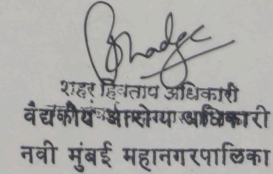 शहर हिवताप अधिकारी
वैद्यकीय आरोग्य अधिकारी
नवी मुंबई महानगरपालिका